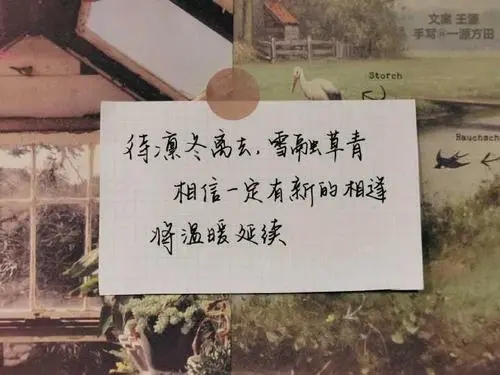 文案 王源
手写@一源方田
Storch
Rauchsch
待凛冬离去,雪融草青
相信一定有新的相逢
将温暖延续